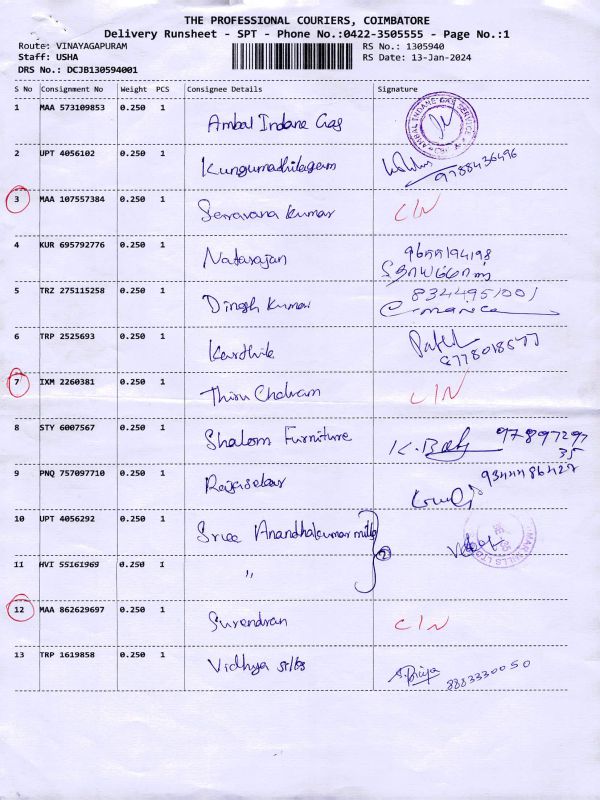 THE PROFESSIONAL COURIERS, COIMBATORE
Delivery Runsheet - SPT - Phone No.:0422-3505555 - Page No.:1
Route: VINAYAGAPURAM RS No.: 1305940
Staff: USHA RS Date: 13-Jan-2024
DRS No.: DCJB130594001
S No Consignment No Weight PCS Consignee Details Signature
1 MAA 573109853 0.250 1 Ambal Indane Gas
2 UPT 4056102 0.250 1 Kungumathilagam 9788436496
3 MAA 107557384 0.250 1 Saravana Kumar CIN
4 KUR 695792776 0.250 1 Natarajan 9655194198
5 TRZ 275115258 0.250 1 Dinesh Kumar 8344951001
6 TRP 2525693 0.250 1 Karthik 8778018577
7 IXM 2260381 0.250 1 Thiru Chelvam CIN
8 STY 6007567 0.250 1 Shalom Furniture 97897297
35
9 PNQ 757097710 0.250 1 Rajasekar 9344486427
10 UPT 4056292 0.250 1 Sree Anandhakumar mills
2
11 HVI 55161969 0.250 1 "
12 MAA 862629697 0.250 1 Surendran CIN
13 TRP 1619858 0.250 1 Vidhya S. Priya 8883330050